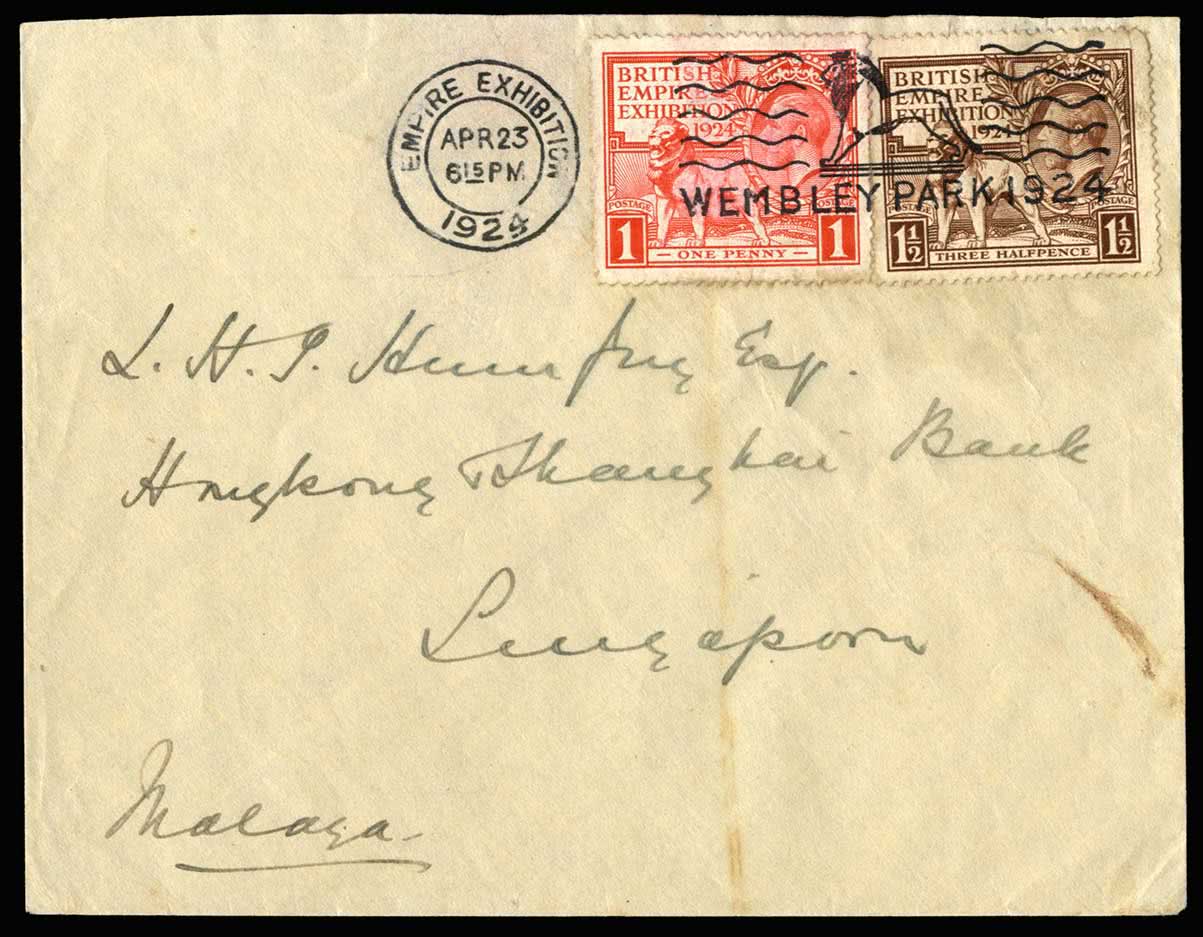 EMPIRE EXHIBITION
APR 23
6 15 PM
1924
BRITISH
EMPIRE
EXHIBITION
1924
POSTAGE POSTAGE
1 — ONE PENNY — 1
BRITISH
EMPIRE
EXHIBITION
1924
POSTAGE POSTAGE
1½ THREE HALFPENCE 1½
WEMBLEY PARK 1924
L. H. J. Humfrey Esq.
Hongkong & Shanghai Bank
Singapore
Malaya.